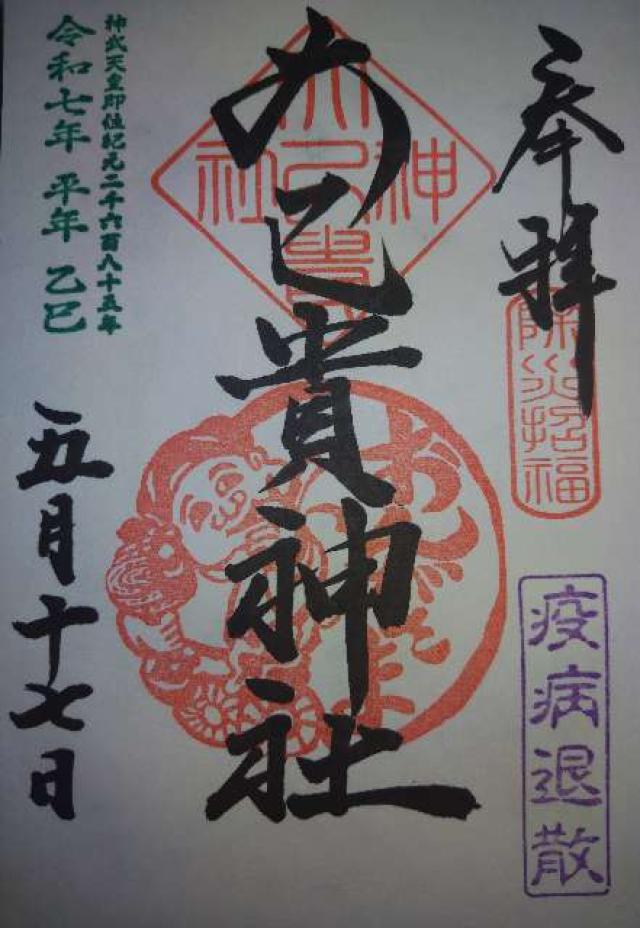 奉拝
除災招福
疫病退散
大己貴神社
大己貴
神
社
おんさま
神武天皇即位紀元二千六百八十五年
令和七年 平年 乙巳
五月十七日